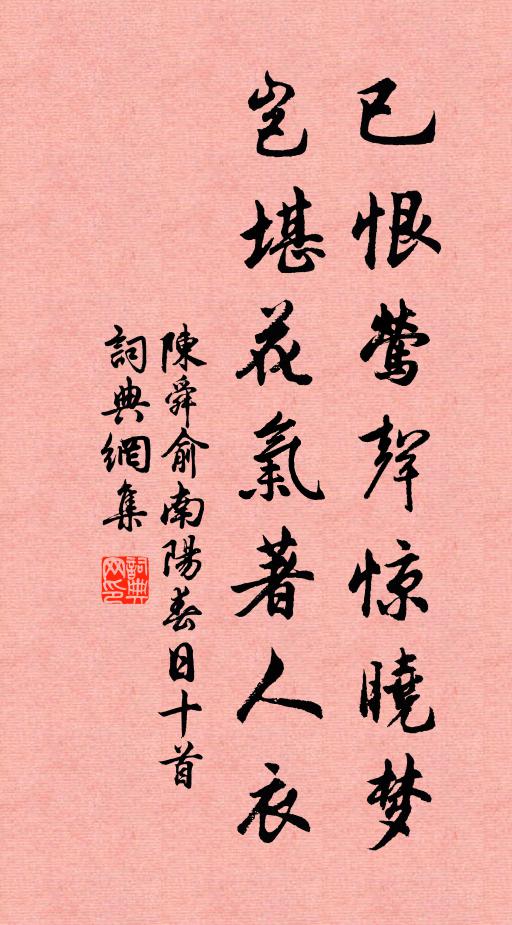 已恨莺聲惊曉梦
岂堪花氣著人衣
陳舜俞南陽春日十首
詞典網集
詞典网印